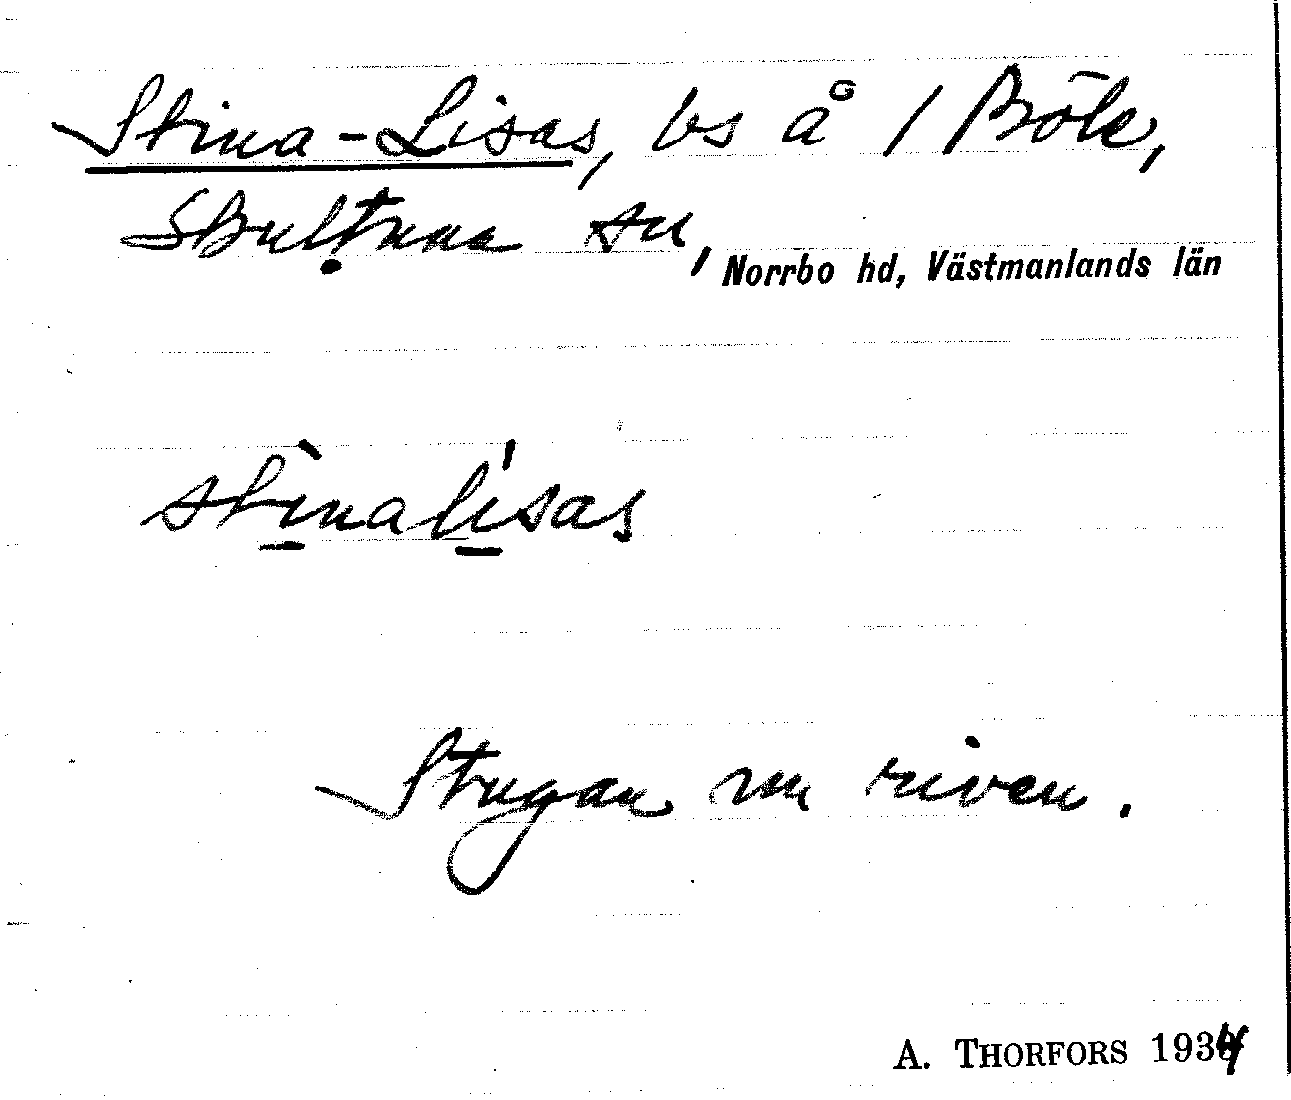 Stina-Lisas, bs å 1 Böle,
Skultuna sn, Norrbo hd, Västmanlands län
stìnalísas
Stugan nu riven.
A. THORFORS 1934